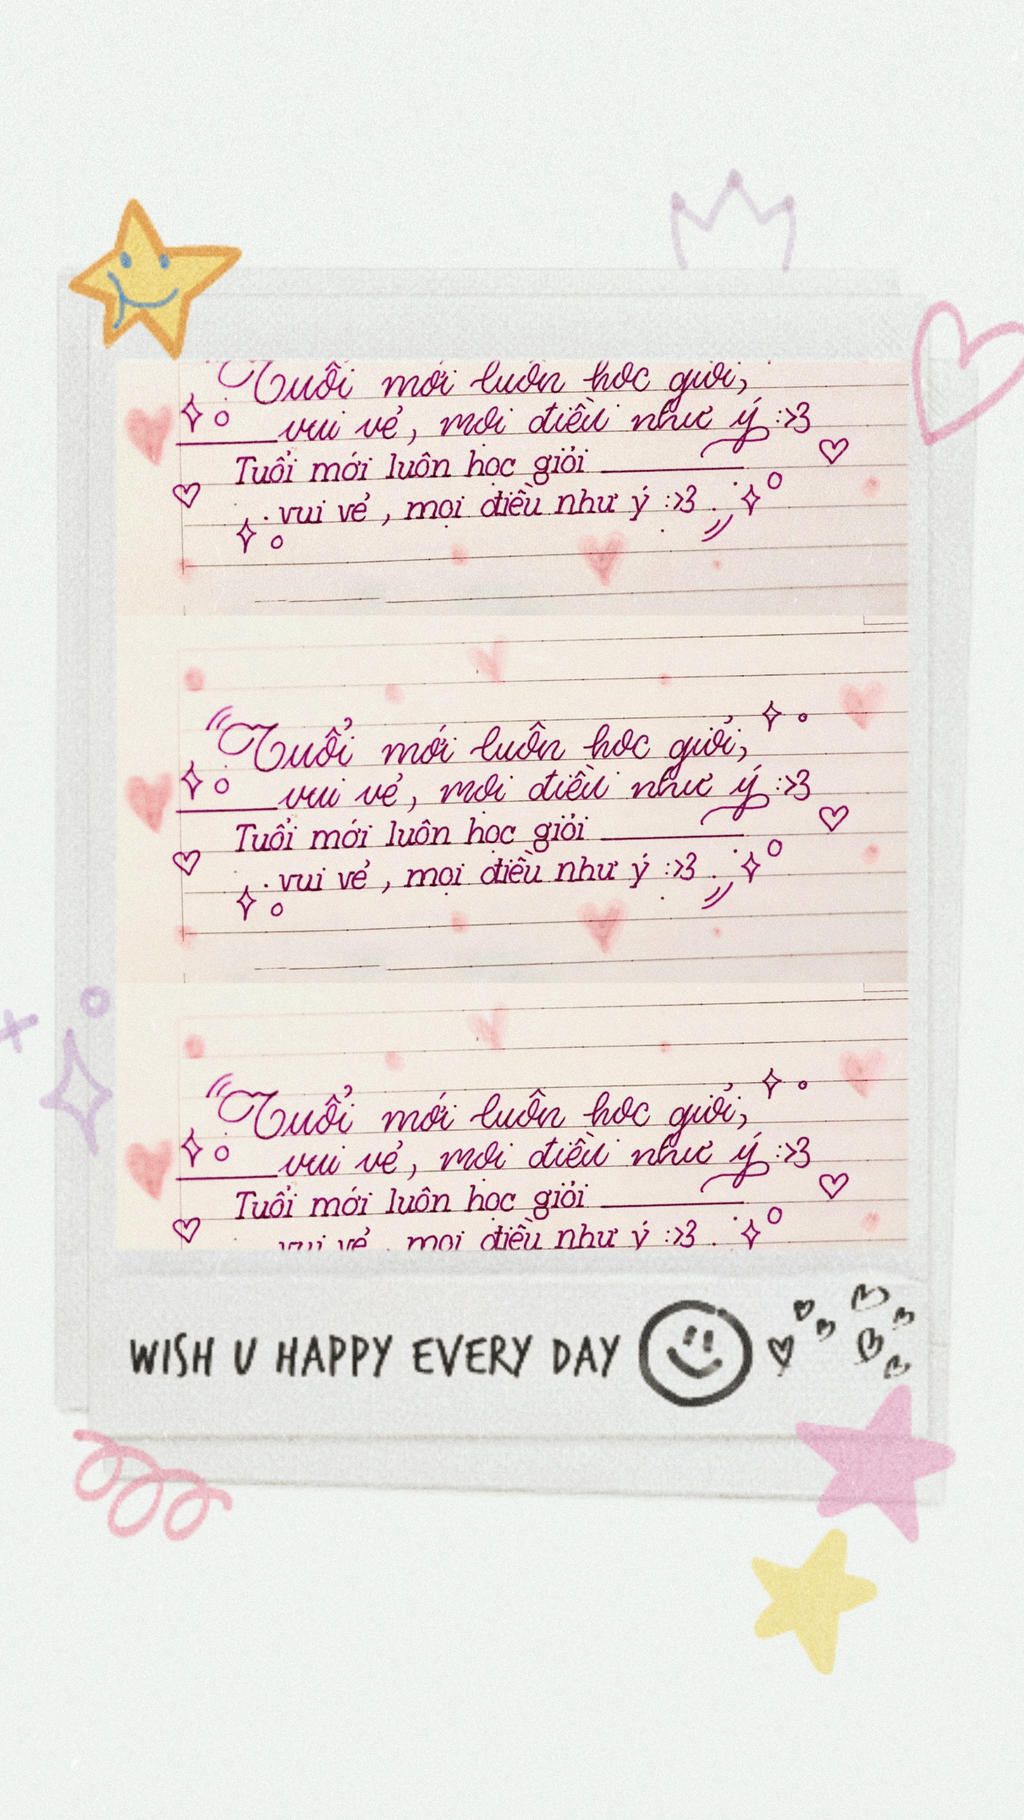 "Tuổi mới luôn học giỏi,
vui vẻ, mọi điều như ý :>3
Tuổi mới luôn học giỏi
vui vẻ, mọi điều như ý :>3
"Tuổi mới luôn học giỏi,
vui vẻ, mọi điều như ý :>3
Tuổi mới luôn học giỏi
vui vẻ, mọi điều như ý :>3
"Tuổi mới luôn học giỏi,
vui vẻ, mọi điều như ý :>3
Tuổi mới luôn học giỏi
vui vẻ, mọi điều như ý :>3
WISH U HAPPY EVERY DAY